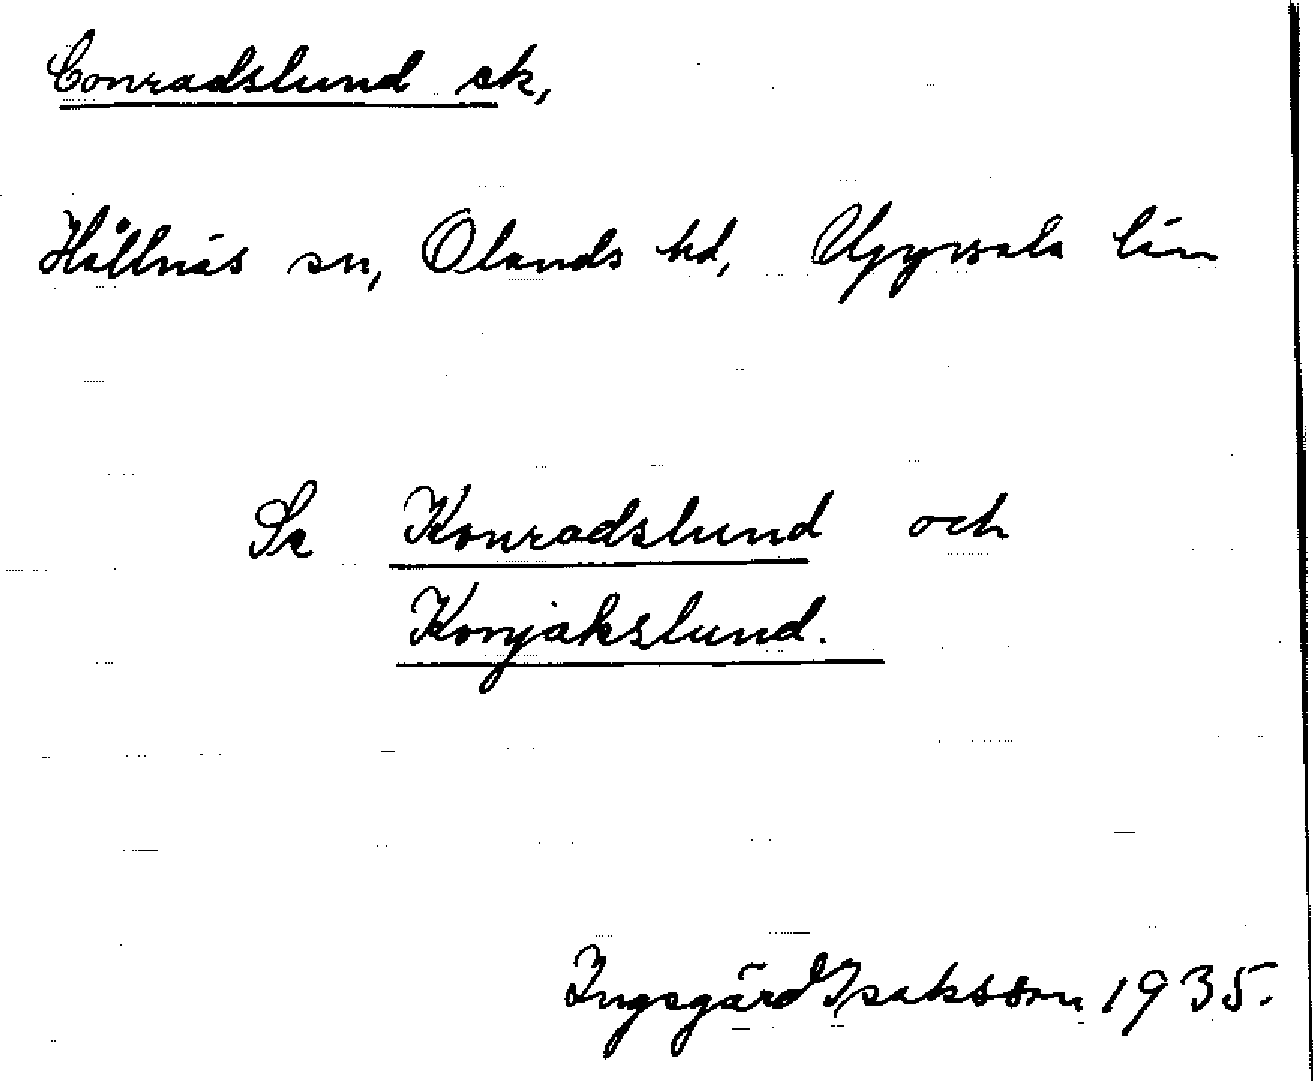 Conradslund ek,
Hållnäs sn, Olands hd, Uppsala län
Se Konradslund och
Konjakslund.
Ingegärd Isaksson 1935.